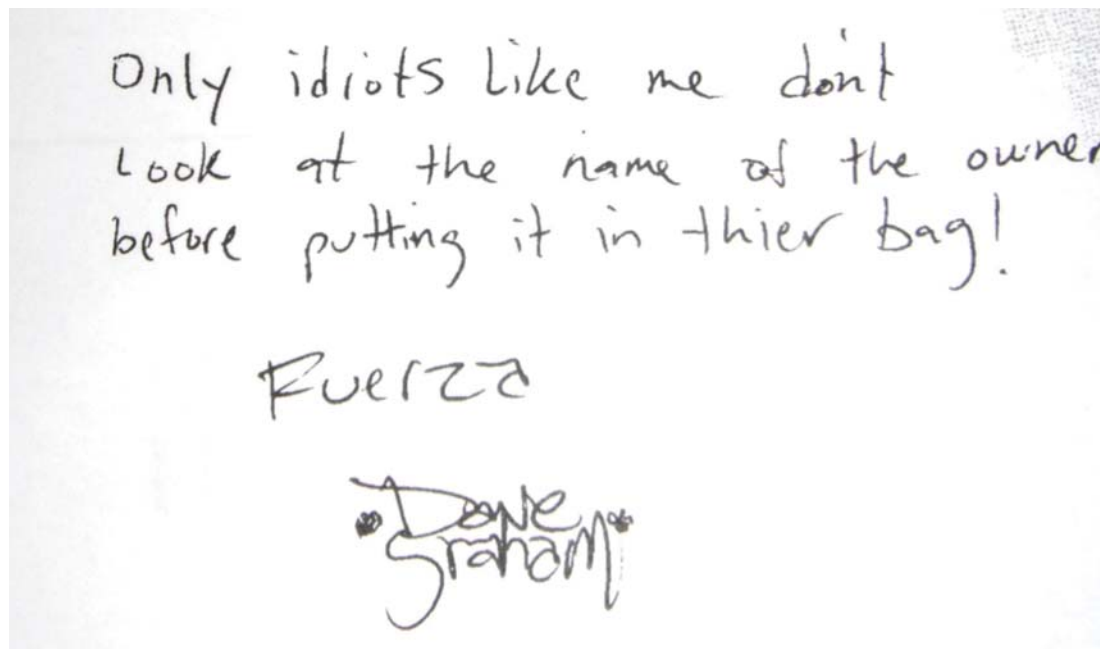 Only idiots like me don't
Look at the name of the owner
before putting it in thier bag!
Fuerza
Dave
Graham